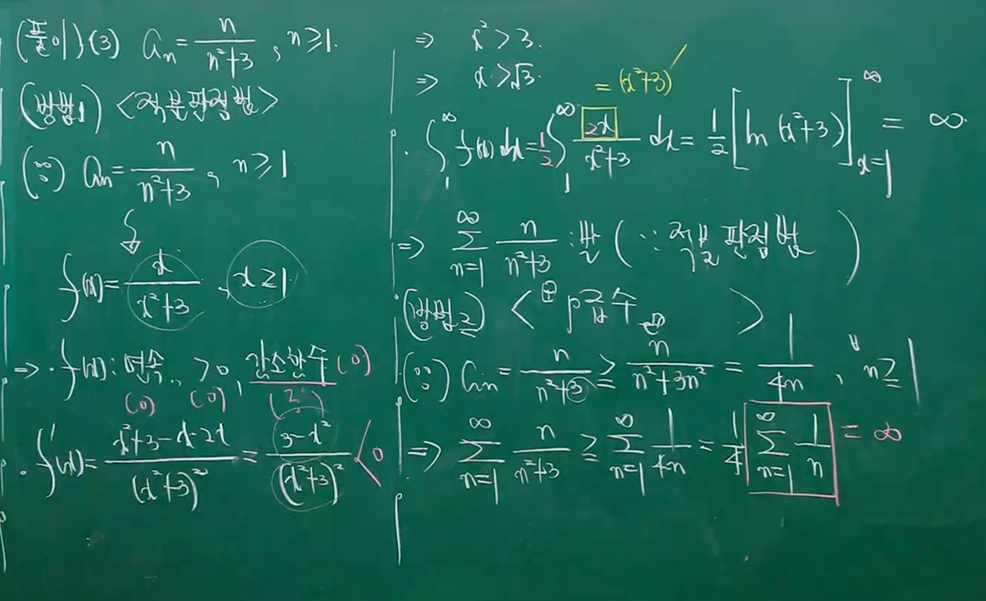 (풀이) (3) aₙ = n/(n²+3), n≥1.
(방법1) <적분판정법>
(∵) aₙ = n/(n²+3), n≥1
f(x) = x/(x²+3), x≥1
⇒ · f(x): 연속, >0, 감소함수 (0)
(0) (0) (?)
· f'(x) = (x²+3-x·2x)/(x²+3)² = (3-x²)/(x²+3)² < 0
⇒ x²>3.
⇒ x>√3.
= (x²+3)′
· ∫₁^∞ f(x)dx = 1/2 ∫₁^∞ 2x/(x²+3) dx = 1/2 [ln(x²+3)]_{x=1}^∞ = ∞.
⇒ ∑_{n=1}^∞ n/(n²+3) : 발 (∵ 적분판정법)
(방법2) < p급수 >
(∵) aₙ = n/(n²+3) ≥ n/(n²+3n²) = 1/4n, ∀n≥1
⇒ ∑_{n=1}^∞ n/(n²+3) ≥ ∑_{n=1}^∞ 1/4n = 1/4 ∑_{n=1}^∞ 1/n = ∞